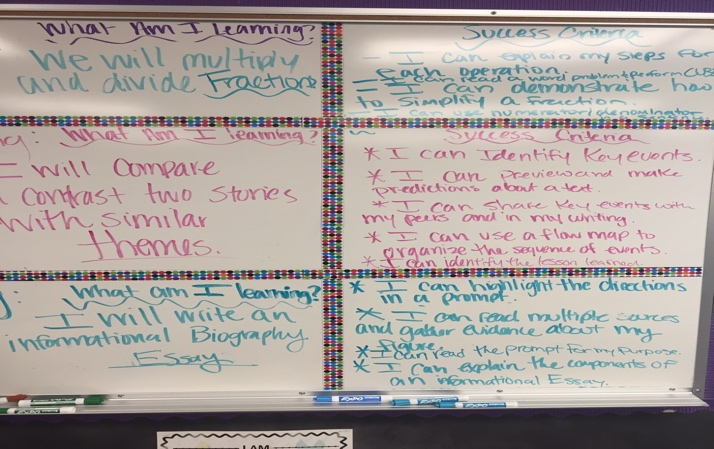 What Am I Learning?
We will multiply
and divide Fractions
Success Criteria
- I can explain my steps for
each operation.
- I can read a word problem + perform CUBE
- I can demonstrate how
to simplify a fraction.
- I can use numerator/denominator
What Am I learning?
I will Compare
contrast two stories
with similar
themes.
Success Criteria
* I can Identify Key events.
* I can preview and make
predictions about a text.
* I can share key events with
my peers and in my writing.
* I can use a flow map to
organize the sequence of events.
* I can identify the lesson learned.
What am I learning?
I will write an
informational Biography
Essay.
* I can highlight the directions
in a prompt.
* I can read multiple sources
and gather evidence about my
figure.
* I can read the prompt for my purpose.
* I can explain the components of
an informational Essay.
EXPO
EXPO
I AM